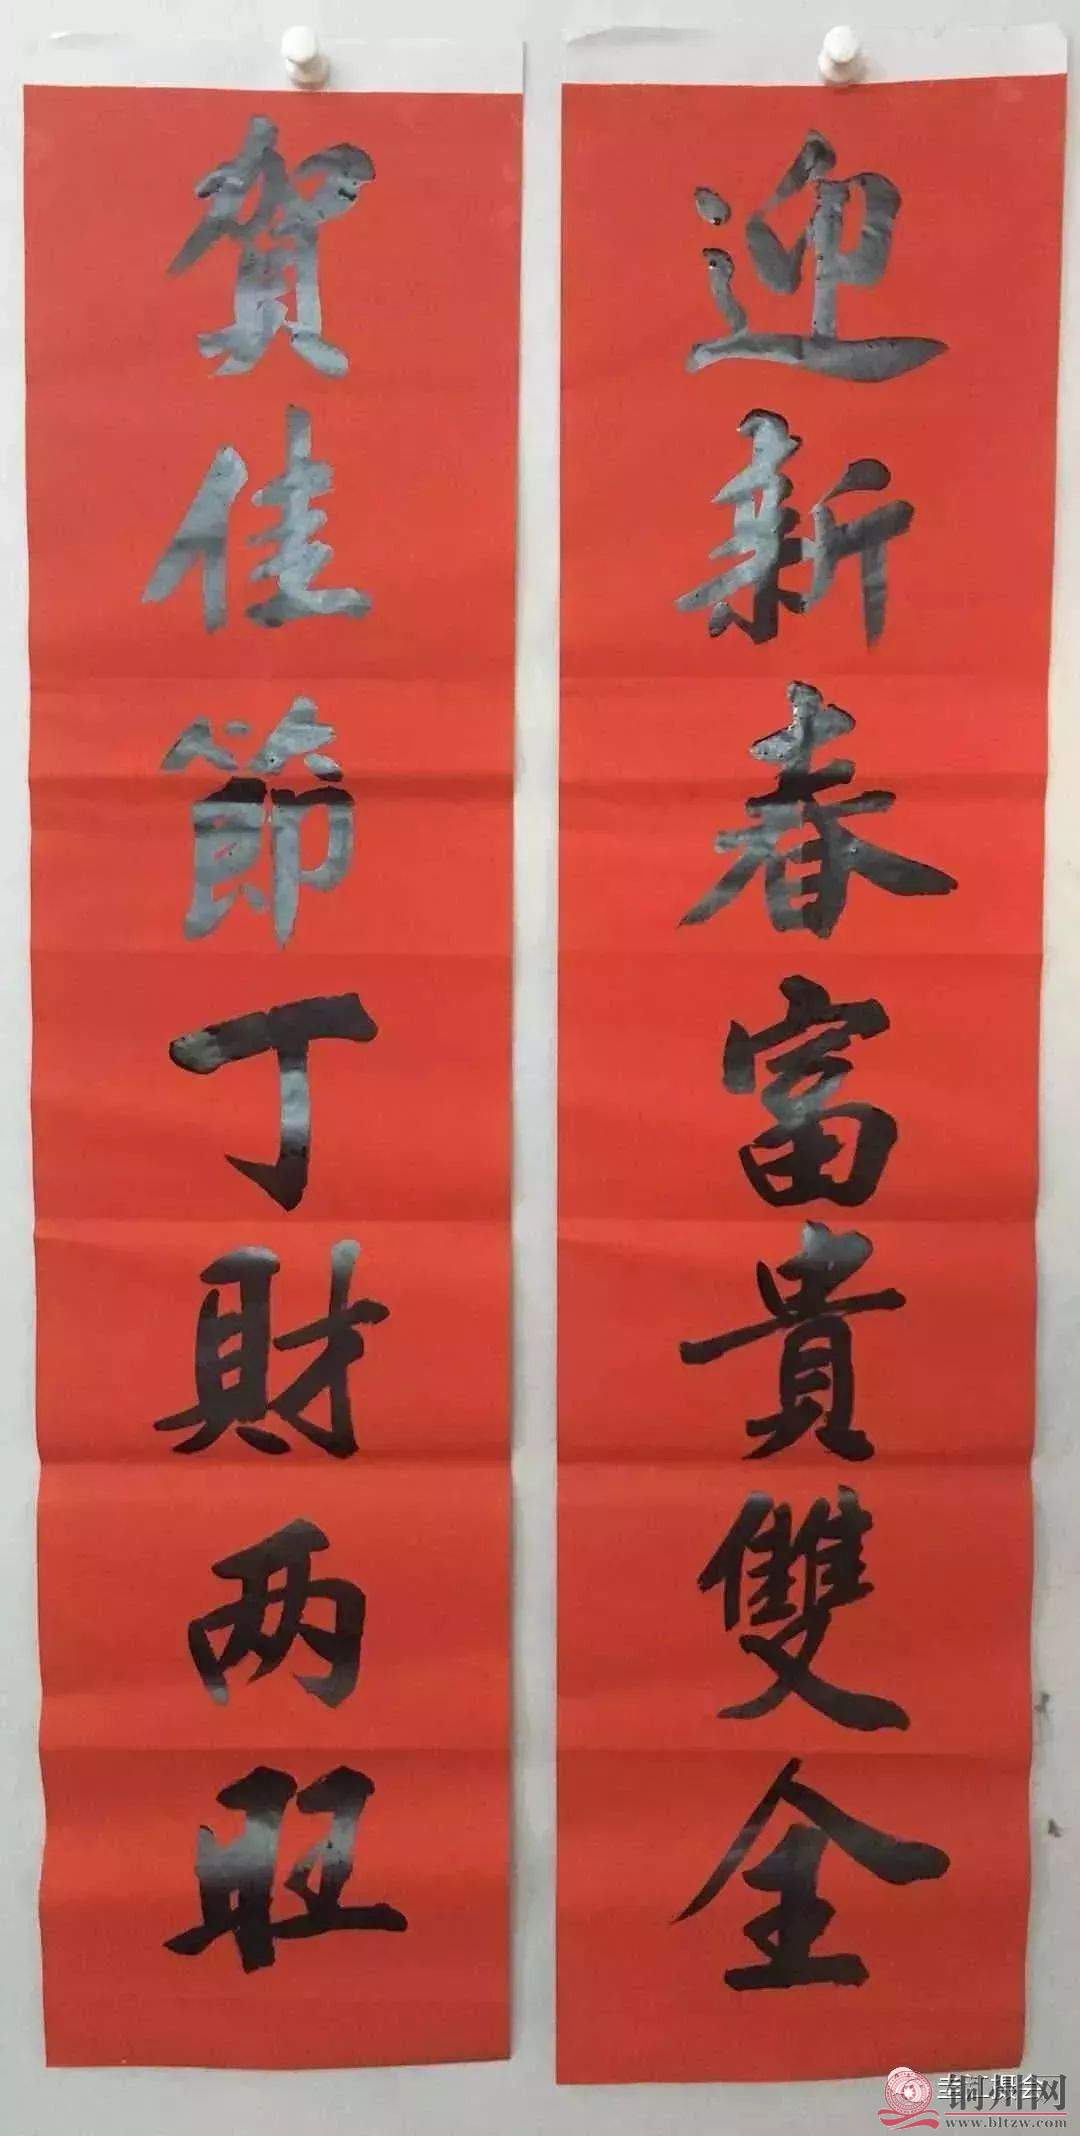 迎新春富貴雙全
賀佳節丁財两旺
铜州网
www.bltzw.com